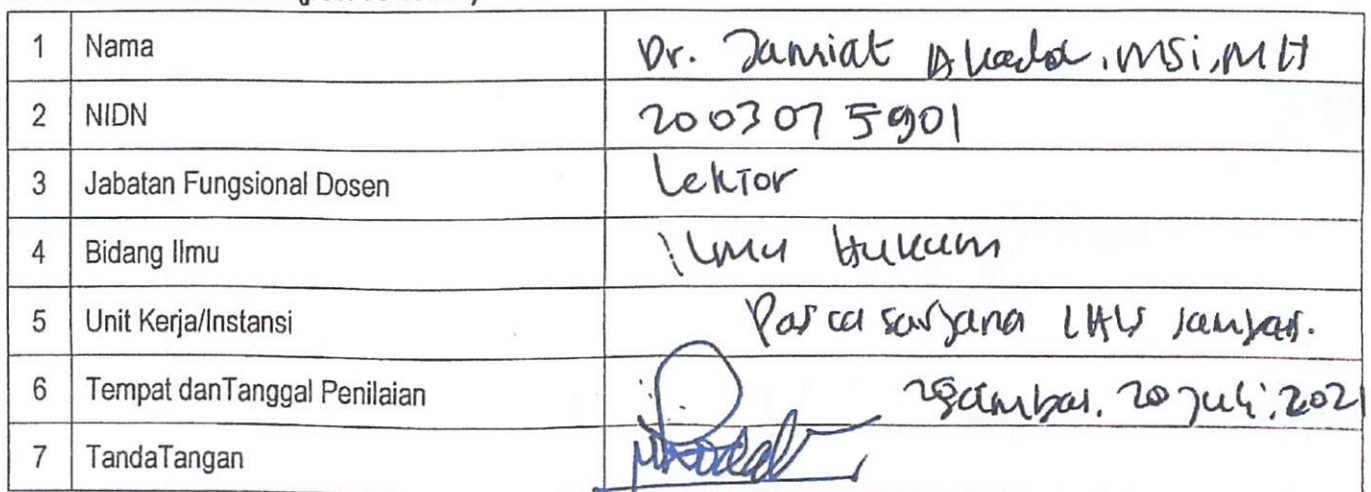 1 Nama Dr. Jamiat Akadol, MSi, MH
2 NIDN 2003075901
3 Jabatan Fungsional Dosen Lektor
4 Bidang Ilmu Ilmu Hukum
5 Unit Kerja/Instansi Pascasarjana
6 Tempat danTanggal Penilaian 20 Juli, 202
7 TandaTangan